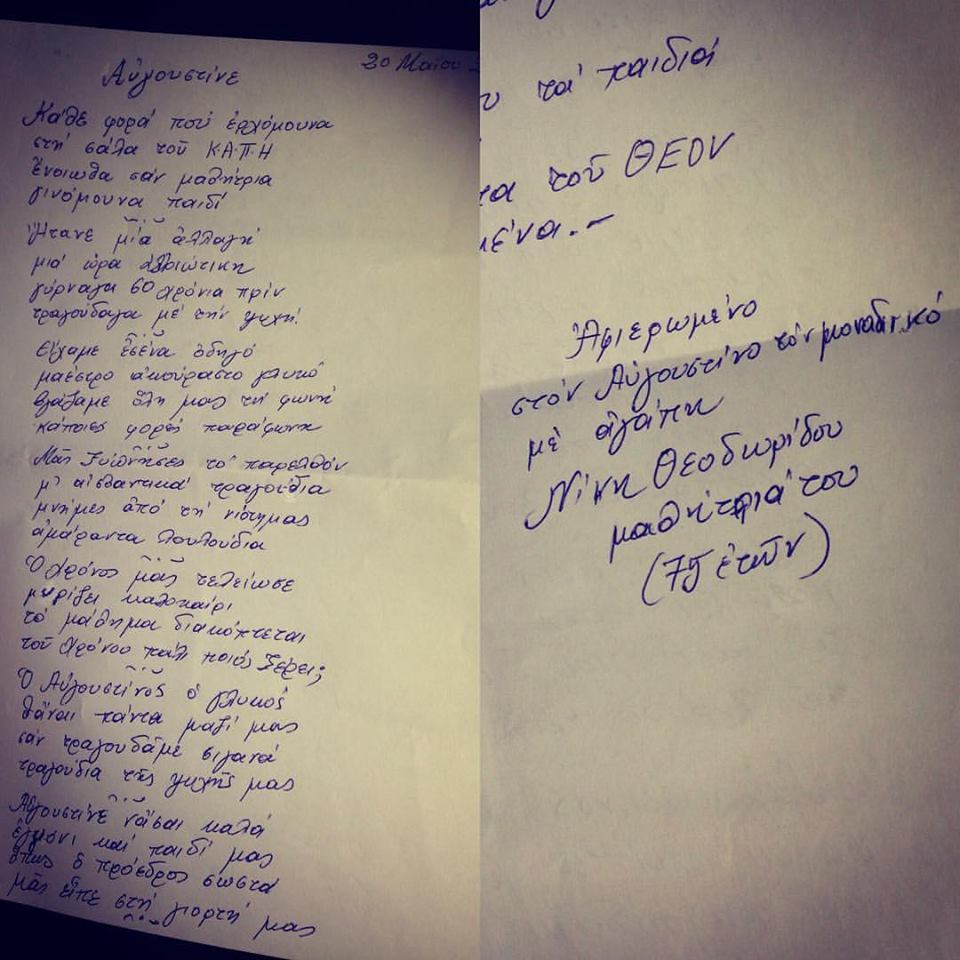 20 Μαΐου
Αὐγουστίνε
Κάθε φορά ποὺ ἐρχόμουνα
στὴ σάλα τοῦ Κ.Α.Π.Η
Ἔνοιωθα σὰν μαθήτρια
γινόμουνα παιδί
Ἤτανε μία ἀλλαγή
μιά ὥρα ἀλλοιώτικη
γύρναγα 60 χρόνια πρίν
τραγούδαγα μὲ τὴν ψυχή!
Εἴχαμε ἐσένα ὁδηγό
μαέστρο ἀκούραστο γλυκό
βγάζαμε ὅλη μας τὴ φωνή
κάποιες φορές παράφωνη
Μᾶς ξύπνησες τὸ παρελθόν
μ' ἀϊσλαντικά τραγούδια
μνῆμες ἀπό τὴ νιότη μας
ἀμάραντα λουλούδια
Ὁ χρόνος μας τελείωσε
μυρίζει καλοκαίρι
τό μάθημα διακόπτεται
τοῦ χρόνου πάλι ποιός ξέρει;
Ὁ Αὐγουστίνος ὁ γλυκός
θἆναι πάντα μαζί μας
σάν τραγουδᾶμε σιγανά
τραγούδια τῆς ψυχῆς μας
Αὐγουστίνε νἆσαι καλά
ἐγγόνι καί παιδί μας
ὅπως ὁ πρόεδρος σωστά
μᾶς εἶπε στή γιορτή μας
τά παιδιά
τοῦ ΘΕΟΥ
Ἀφιερωμένο
στόν Αὐγουστίνο τόν μοναδικό
μὲ ἀγάπη
Νίκη Θεοδωρίδου
μαθήτριά του
(75 ἐτῶν)